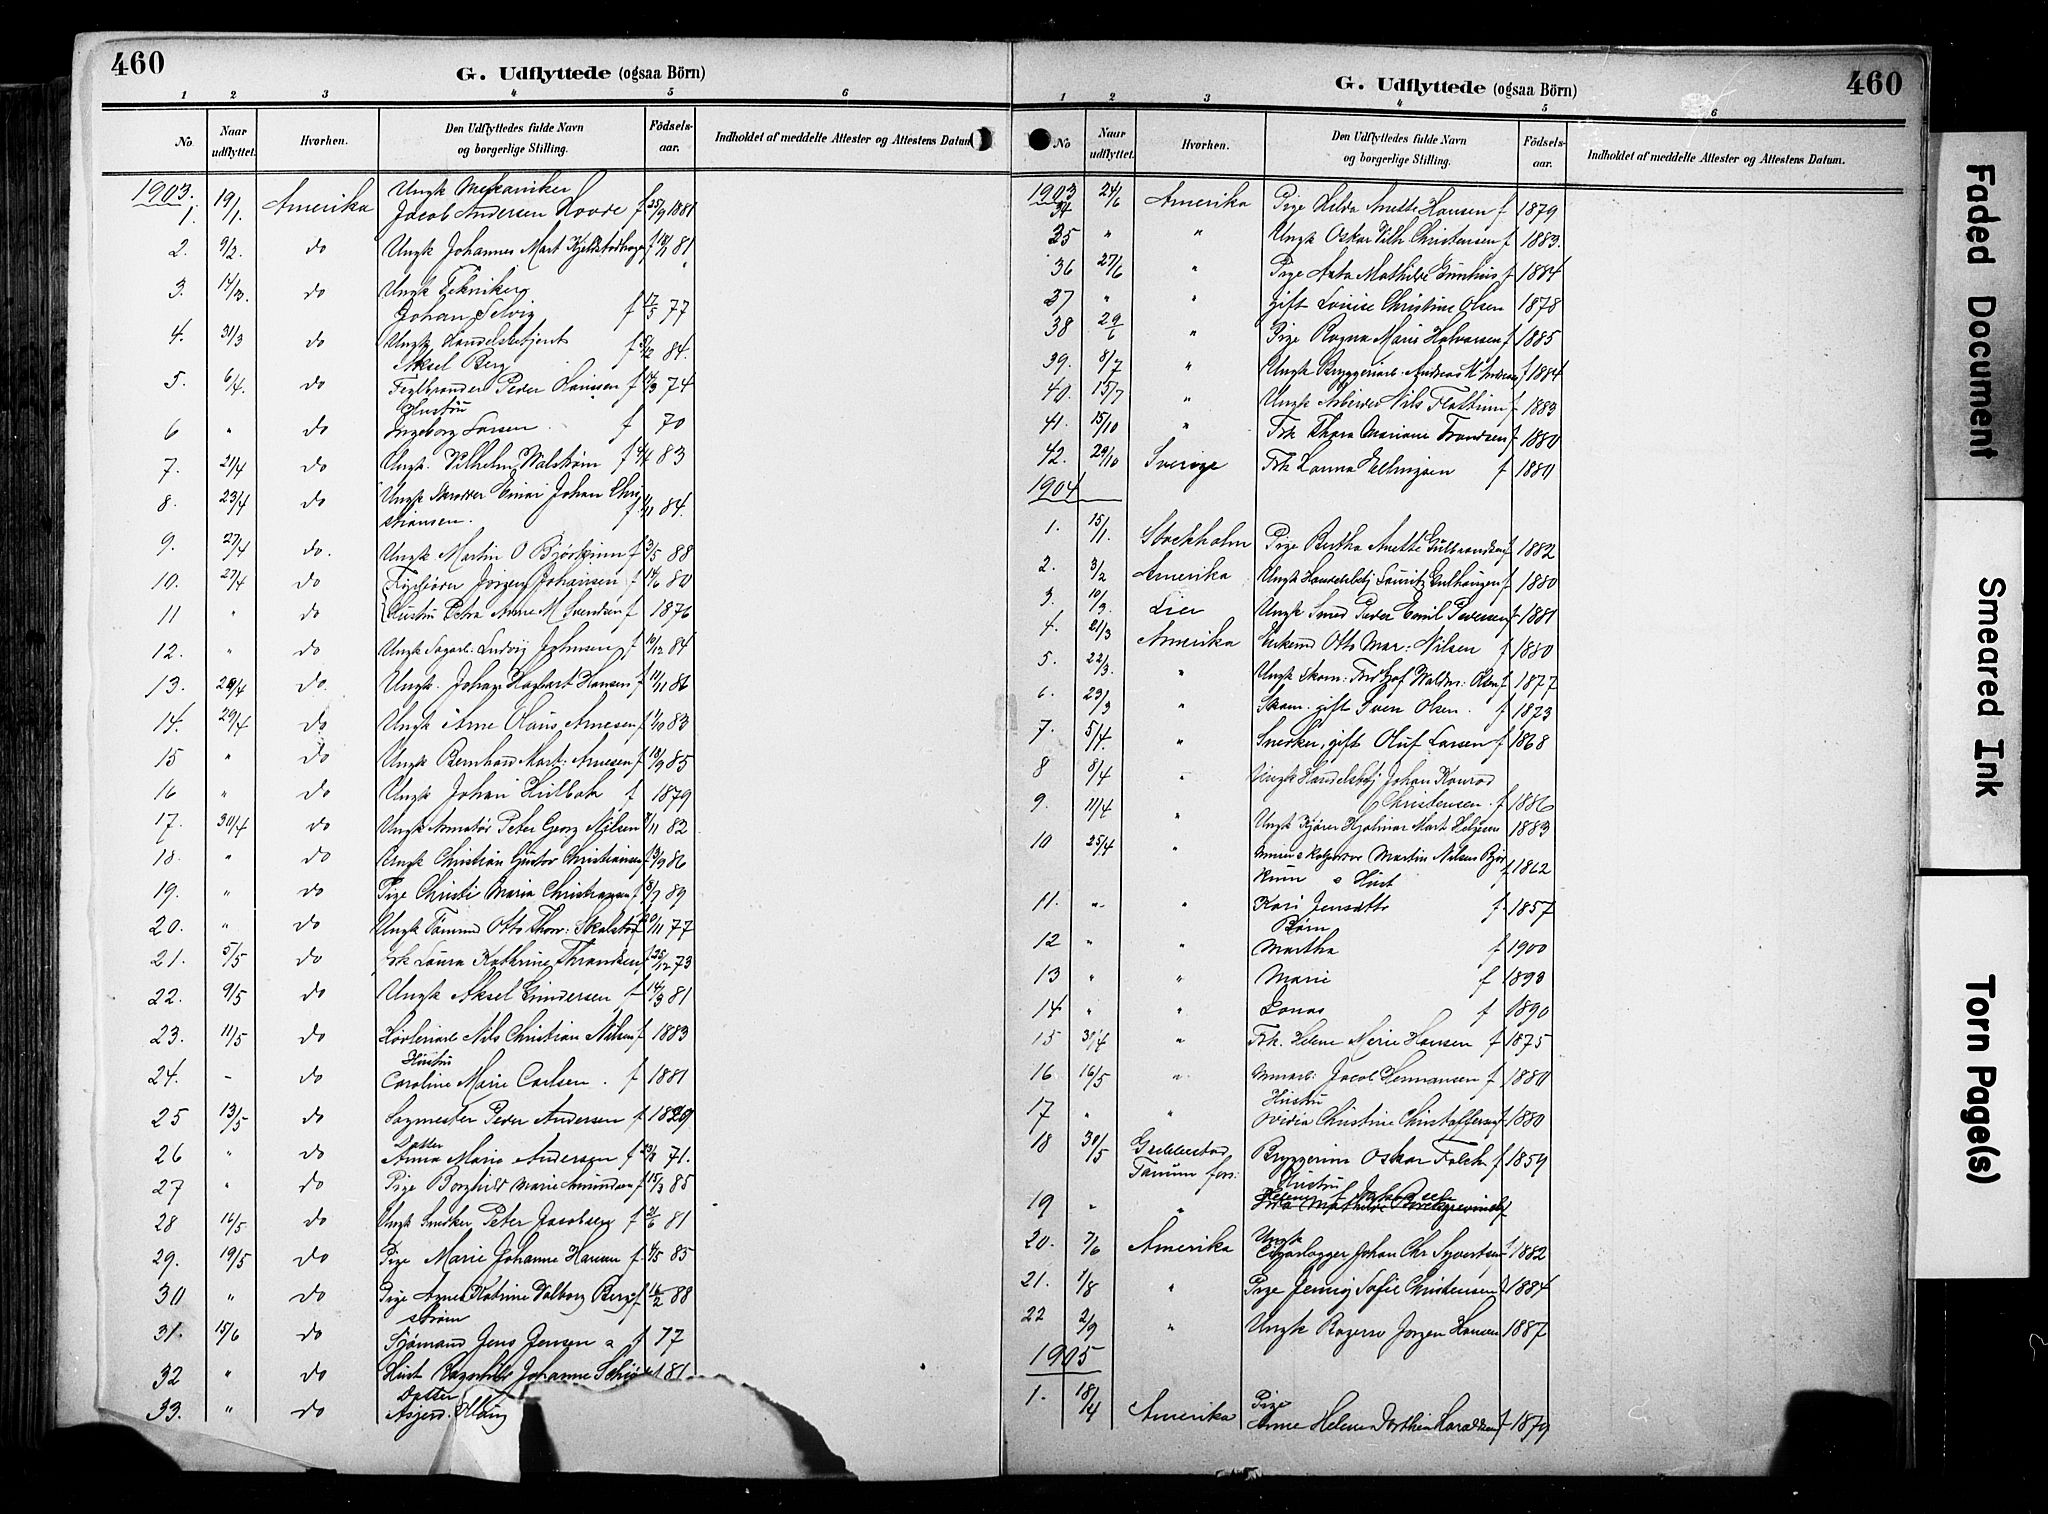 460
G. Udflyttede (ogsaa Börn)
1 2 3 4 5 6
No. Naar udflyttet. Hvorhen. Den Udflyttedes fulde Navn og borgerlige Stilling. Födsels-aar. Indholdet af meddelte Attester og Attestens Datum
1903.
Ungk Mekaniker
1. 19/1. Amerika Jacob Andersen f 25/9 1881
2. 9/2. do Ungk Johannes Mart 81
3. 14/3. do Ungk Tekniker
Johan Selvig f 17/5 77
4. 31/3 do Ungk Handelsbetjent
Aksel Berg f 84.
5. 6/4. do Teglbrænder Peder Hansen f 74
Hustru
6 " do Ingeborg Larsen. f 70
7. 21/4 do Ungk. Vilhelm Walstrøm f 83
8. 23/4 do Ungk Skrædder Einar Johan Chri
stiansen. f. 84.
9. 27/4 do. Ungk. Martin O f 3/5 88
10. 27/4 do Jørgen Johansen f 14/6 80
11 " do Hustru Petra Anne M Svendsen f 1876
12. " do Ungk Sagarb. Ludvig Johnsen f 10/12 84
13. 29/4 do. Ungk. Johan Hagbart Hansen f 11/11 86
14. 29/4 do Ungk Arne Olaus Arnesen f 83
15 " do Ungk Bernhard Mart: Arnesen f 10/9 85
16 " do Ungk Johan f 1879
17. 30/4 do Ungk Peter Georg Nilsen 82
18. " do Ungk Christian Gustav Christiansen f 86
19. " do Pige Christi Maria f 89
20. " do Ungk Tømmd Otto Thorv: 20/11 77
21. 5/5 do Frk Laura Kathrine Thrandsen f 25/12 73
22. 9/5 do Ungk Aksel Gundersen f 14/3 81
23. 11/5 do Høvleriarb Nils Christian Nilsen f 1883
Hustru
24. - do Caroline Marie Carlsen. f 1881
25 13/5 do Sagmester Peder Andersen f
Datter
26 " do Anna Marie Andersen f 71.
27 " do Pige Borghild Marie Amundsen f 15/3 85
28 16/5 do Ungk Snedker Peter Jacobsen f 81
29. 19/5 do Pige Marie Johanne Hansen f 4/5 85
30 " do Pige Agnes Katrine Valborg Berg- f 16/2 88
strøm
31. 15/6 do Sjømand Jens Jensen f 77
32 " do Hust Johanne 81
Datter
33. " do
460
G. Udflyttede (ogsaa Börn)
1 2 3 4 5 6
No Naar udflyttet. Hvorhen. Den Udflyttedes fulde Navn og borgerlige Stilling. Födsels-aar. Indholdet af meddelte Attester og Attestens Datum.
1903
34 24/6 Amerika Pige Hilda Anette Hansen f 1879
35 " " Ungk Oskar Vilh Christensen f 1883.
36 27/6 " Pige Mathilde f 1884
37 " " gift Louise Christine Olsen 1878
38 29/6 " Pige Ragna Marie Halvorsen f 1885
39. 8/7 " Ungk Bryggeriarb. Andreas f 1884
40. 13/7 " Ungk Arbeider Nils f 1883
41. 15/10 " Frk Thora Mariane Trondsen f 1880
42. 29/10 Sverige Frk f 1880
1904
1. 15/1. Stockholm Pige Bertha Anette Gulbrandsen f 1882
2. 3/2 Amerika Ungk Handelsbtj Laurits f 1880
3. 10/3. Lier Ungk Smed Peder Emil Pedersen f 1881
4. 21/3 Amerika Enkemd Otto Mar: Nilsen f 1880
5. 22/3. " Ungk Skom: Waldm: Olsen f 1877
6. 29/3 " Skom. gift Sven Olsen. f 1873
7. 5/4. " Snedker, gift Oluf Larsen f 1868
8 8/4 " Ungk Handelsbtj Johan Konrad
Christensen. f 1886
9. 11/4 " Ungk Kjører Hjalmar Mart Helgesen 1883
10 25/4 " Martin Nilsen Bjør
kum o Hust f 1862
11. " " Kari Jensdttr f. 1857
Børn
12 " " Martha f 1900
13 " " Marie f 1893
14 " " Jonas f 1890
15 30/4 " Frk. Helene Marie Hansen f 1875
16 16/5 " Murarb: Jacob Hermansen f 1880
Hustru
17 " " Christine Christoffersen f 1880
18 30/5 Grebbestad Bryggerim Oskar Falck f 1859
Tanum fors: Hustru
19 " "
20. 7/6 Amerika Ungk
Johan Chr Syvertsen f 1882
21. 1/8 " Pige Jenny Sofie Christensen f 1884
22 2/9 " Ungk Jørgen Hansen 1887
1905
Pige
1. 18/4 Amerika Anne Helene Dorthea Haraldsen f 1879
Faded Document
Smeared Ink
Torn Page(s)